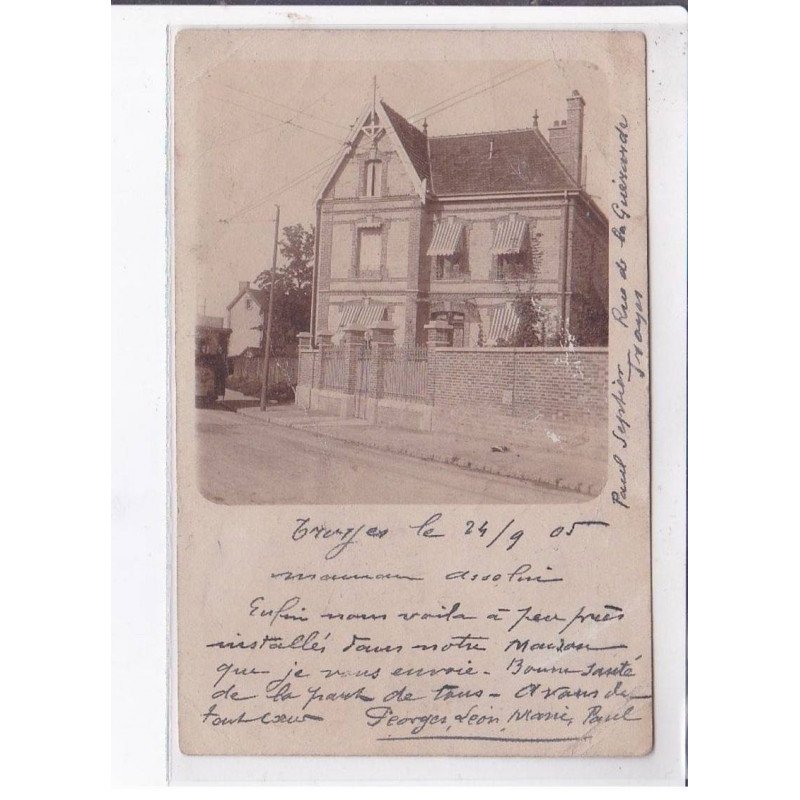 Troyes le 24/9 05
maman Asselin
Enfin nous voila à peu près
installés dans notre maison
que je vous envoie - Bonne santé
de la part de tous - A vous de
tout cœur Georges, Léon, Marie, Paul
Paul Septier Rue de la Guérarde
Troyes